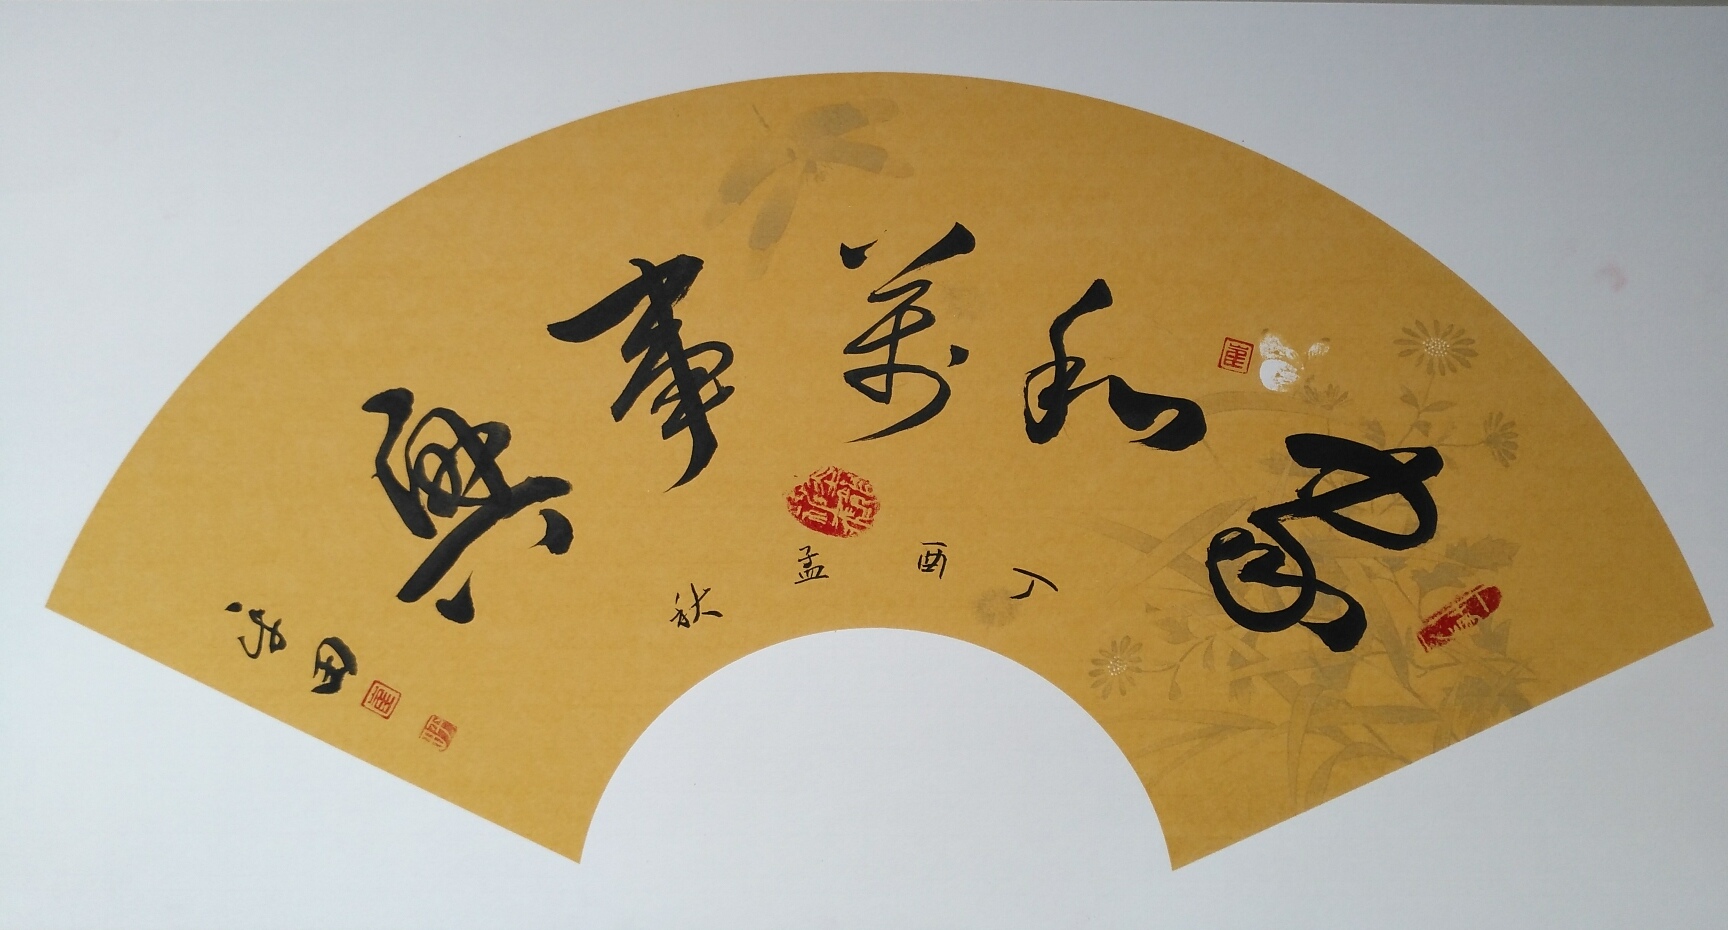 家和萬事興
丁酉孟秋